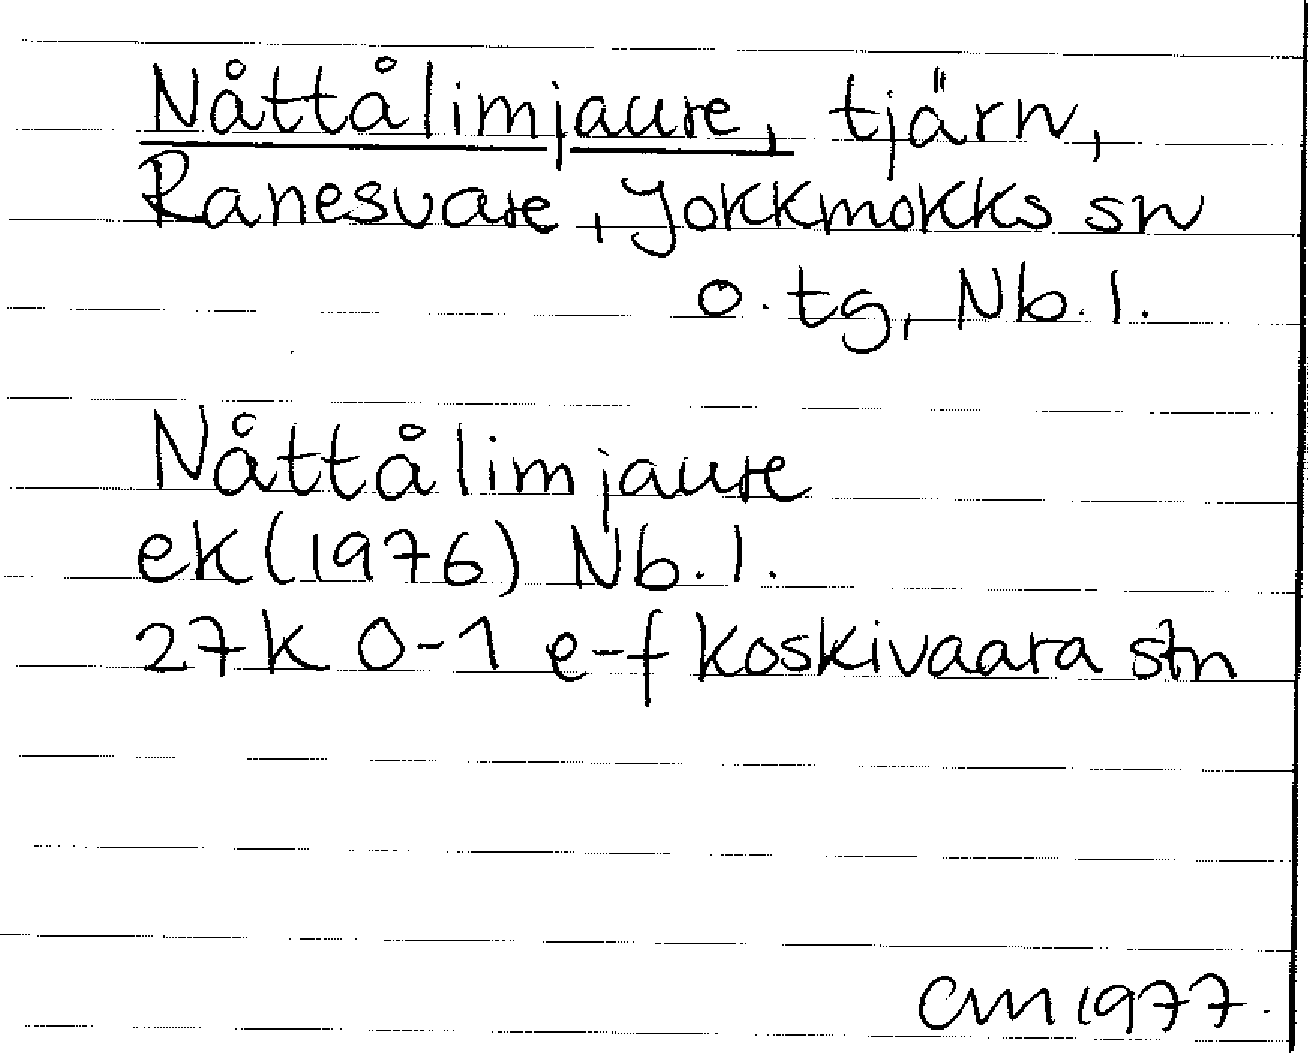 Nåttålimjaure, tjärn,
Ranesvare, Jokkmokks sn
o. tg, Nb. l.
Nåttålimjaure
ek (1976) Nb. l.
27K 0-1 e-f Koskivaara stn
CM 1977.